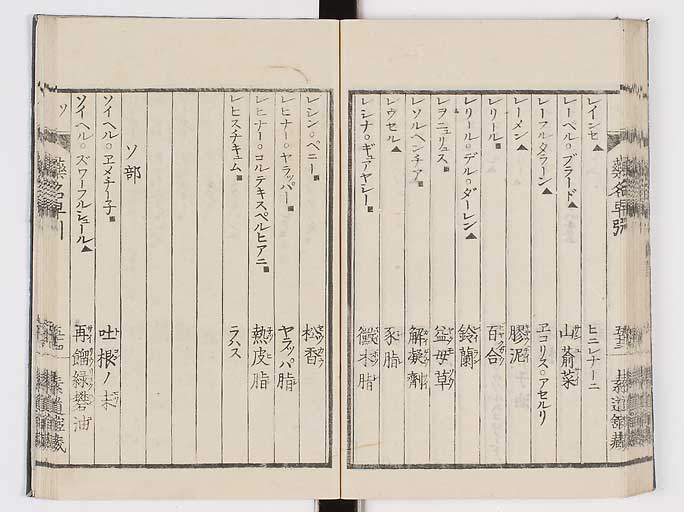 レインセ▲ ヒニレナーニ
レーペル○ブラード▲ 山薊菜
レーフルタラーン▲ ヱコリス○アセルリ
レーメン▲ 膠泥
レリール■ 百合
レリール○デル○ダーレン▲ 鈴蘭
レヲニュリュス■ 益母草
レソルヘンチア■ 解凝劑
レウセル▲ 豕脂
レシナ○ギュアヤシー■
レシン○ベニー■ 松香
レヒナー○ヤラッパー■ ヤラッパ脂
レヒナー○コルテキスペルヒアニ■ 熱皮脂
レヒスチキュム■ ラハス
ソ部
ソイヘル○ヱメチー子■ 吐根ノ末
ソイヘル○ズワーフルシュール▲ 再餾緑礬油
ソ